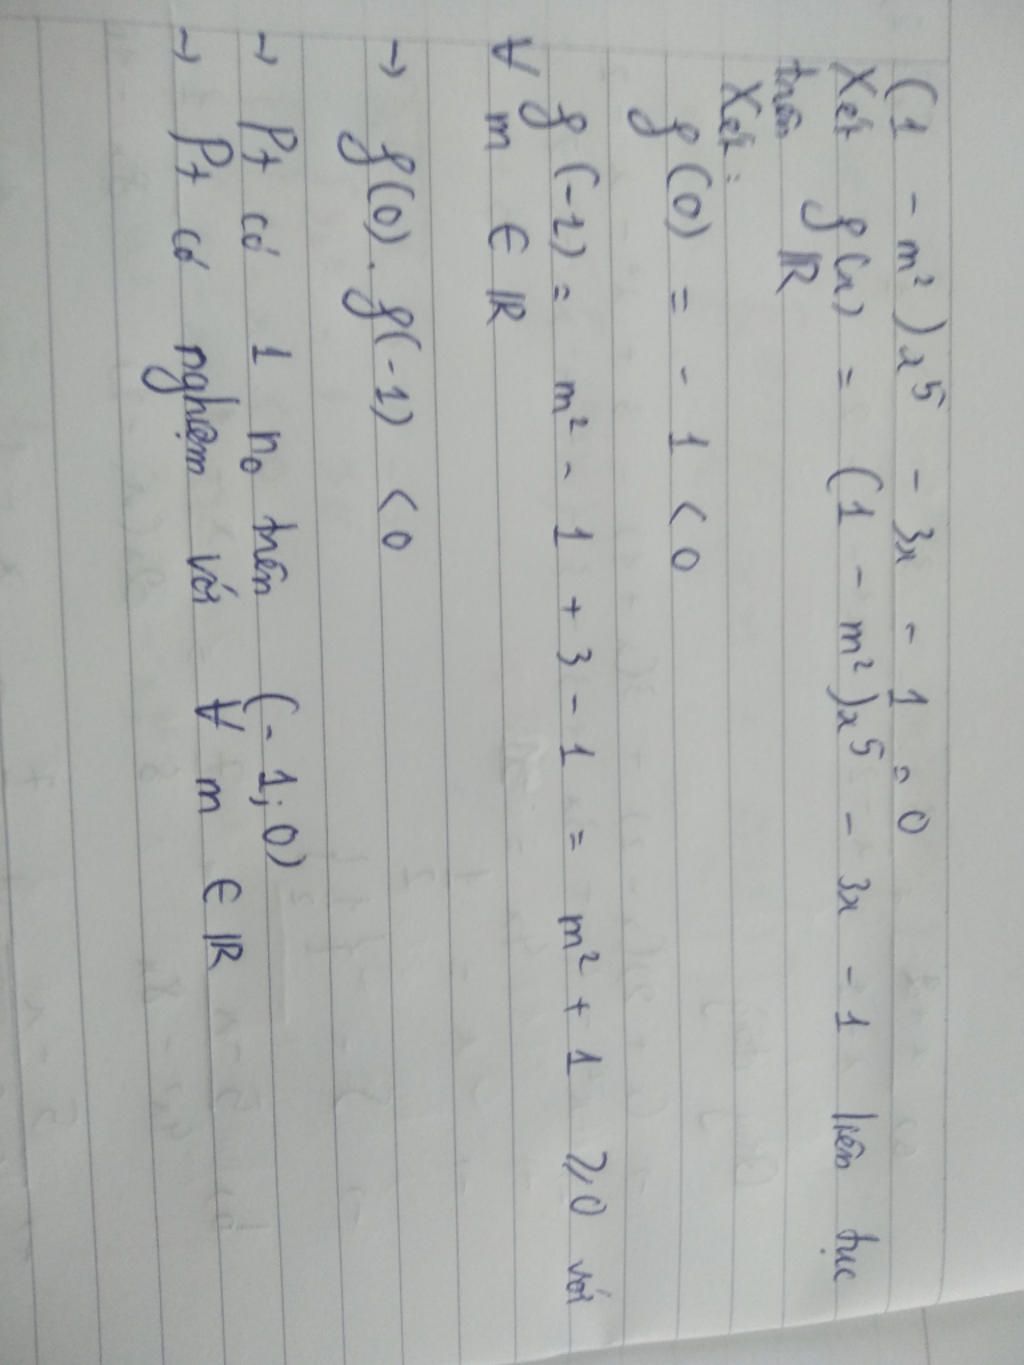 (1 - m²)x⁵ - 3x - 1 = 0
Xét f(x) = (1 - m²)x⁵ - 3x - 1 liên tục
trên ℝ
Xét:
f(0) = - 1 < 0
f(-1) = m² - 1 + 3 - 1 = m² + 1 ⩾ 0 với
∀ m ∈ ℝ
→ f(0). f(-1) < 0
→ Pt có 1 n₀ trên (- 1; 0)
→ Pt có nghiệm với ∀ m ∈ ℝ